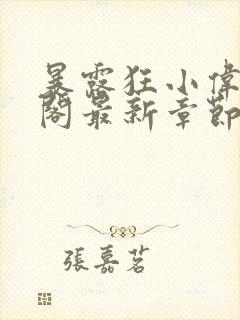 暴露狂小偉
閣最新章節
張嘉茗